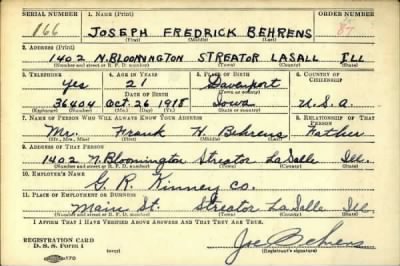 SERIAL NUMBER 1. NAME (Print) ORDER NUMBER
166 JOSEPH FREDRICK BEHRENS 87
(First) (Middle) (Last)
2. ADDRESS (Print)
1402 N. BLOOMINGTON STREATOR LASALL ILL
(Number and street or R. F. D. number) (Town) (County) (State)
3. TELEPHONE 4. AGE IN YEARS 5. PLACE OF BIRTH 6. COUNTRY OF CITIZENSHIP
Yes 21 Davenport
DATE OF BIRTH (Town or county)
36404 Oct. 26 1918 Iowa U.S.A.
(Exchange) (Number) (Mo.) (Day) (Yr.) (State or country)
7. NAME OF PERSON WHO WILL ALWAYS KNOW YOUR ADDRESS 8. RELATIONSHIP OF THAT PERSON
Mr. Frank H. Behrens Father
(Mr., Mrs., Miss) (First) (Middle) (Last)
9. ADDRESS OF THAT PERSON
1402 N. Bloomington Streator La Salle Ill.
(Number and street or R. F. D. number) (Town) (County) (State)
10. EMPLOYER'S NAME
G. R. Kinney Co.
11. PLACE OF EMPLOYMENT OR BUSINESS
Main St. Streator La Salle Ill.
(Number and street or R. F. D. number) (Town) (County) (State)
I AFFIRM THAT I HAVE VERIFIED ABOVE ANSWERS AND THAT THEY ARE TRUE.
REGISTRATION CARD
D. S. S. Form 1 Joe Behrens
(Registrant's signature)